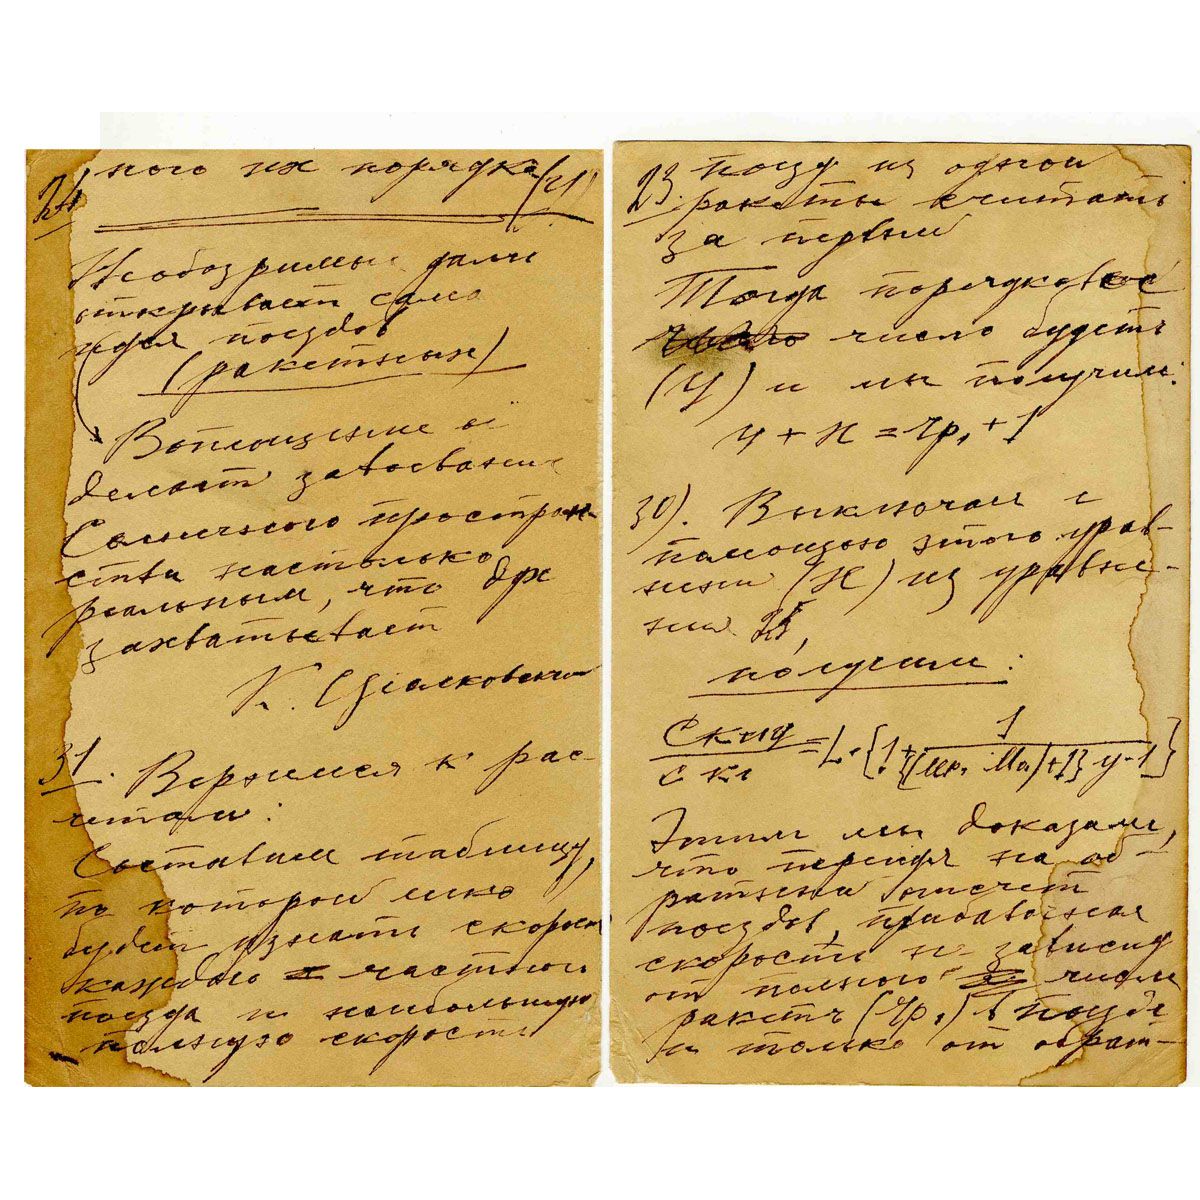 24
ного их порядка (y)
Необозримые дали
открывает сама
идея поездов
(ракетных)
Воплощение её
делает завоевания
Солнечного простран-
ства настолько
реальным, что дух
захватывает
К. Циолковский
31. Вернемся к рас-
четам:
Составим таблицу,
по которой легко
будет узнать скорость
каждого частного
поезда и наибольшую
полную скорость
23. поезд из одной
ракеты считать
за первый
Тогда порядковое
число будет
(y) и мы получим:
y + x = чр₁ + 1
30). Выключаем с
помощью этого урав-
нения (x) из уравне-
ния 25,
получим:
= L · {1 + 1
y - 1}
Этим мы доказали,
что переходя на об-
ратный отсчет
поездов, прибавочная
скорость не зависит
от полного числа
ракет (чр₁) в поезде
и только от обрат-